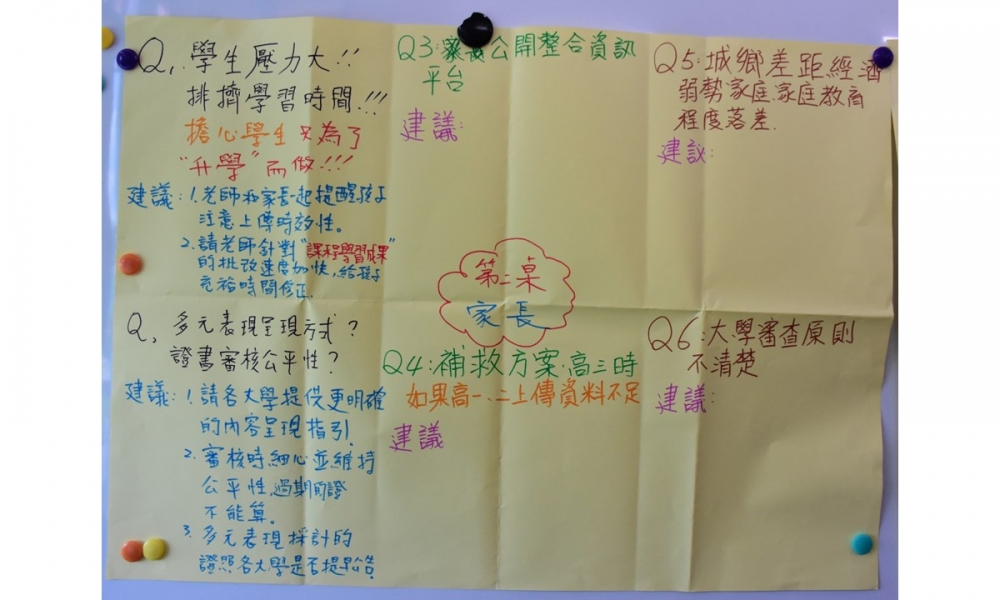 Q1 學生壓力大!!
排擠學習時間!!!
擔心學生只為了
"升學"而做!!!
建議:1.老師和家長一起提醒孩子
注意上傳時效性。
2.請老師針對"課程學習成果"
的批改速度加快,給孩子
充裕時間修正.
Q2 多元表現呈現方式?
證書審核公平性?
建議:1.請各大學提供更明確
的內容呈現指引.
2.審核時細心並維持
公平性,過期的證
不能算。
3.多元表現採計的
證照各大學是否提早公告
Q3:公開整合資訊
平台
建議:
第二桌
家長
Q4:補救方案.高三時
如果高一、二上傳資料不足
建議
Q5:城鄉差距經濟
弱勢家庭.家庭教育
程度落差.
建議:
Q6:大學審查原則
不清楚
建議: